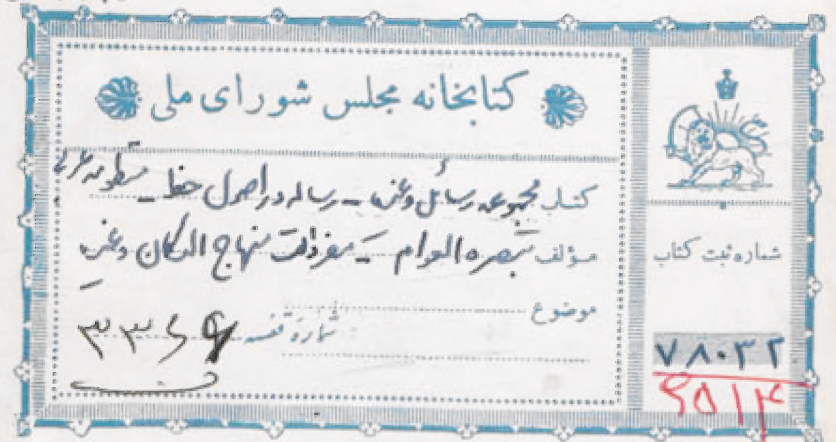 کتابخانه مجلس شورای ملی
کتاب مجموعه رسائل وغیره - رساله در اصول خط - منظومه عربی
مؤلف تبصره العوام - مفردات منهاج الدکان وغیره
موضوع
شماره قفسه ۳۳۶۹
شماره ثبت کتاب
۷۸۰۳۲
۶۵۱۴